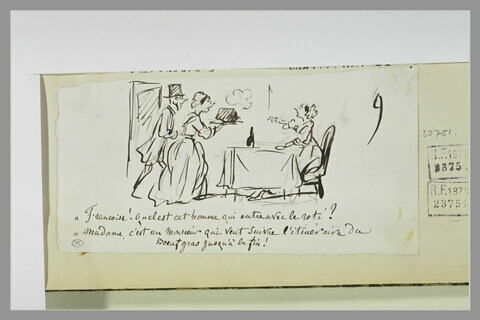 9
20751.
« Françoise! Quel est cet homme qui entre avec le roti ?
« Madame c'est un Monsieur qui veut suivre l'itineraire du
Boeuf gras jusqu'à la fin !
R.F. 187
23754